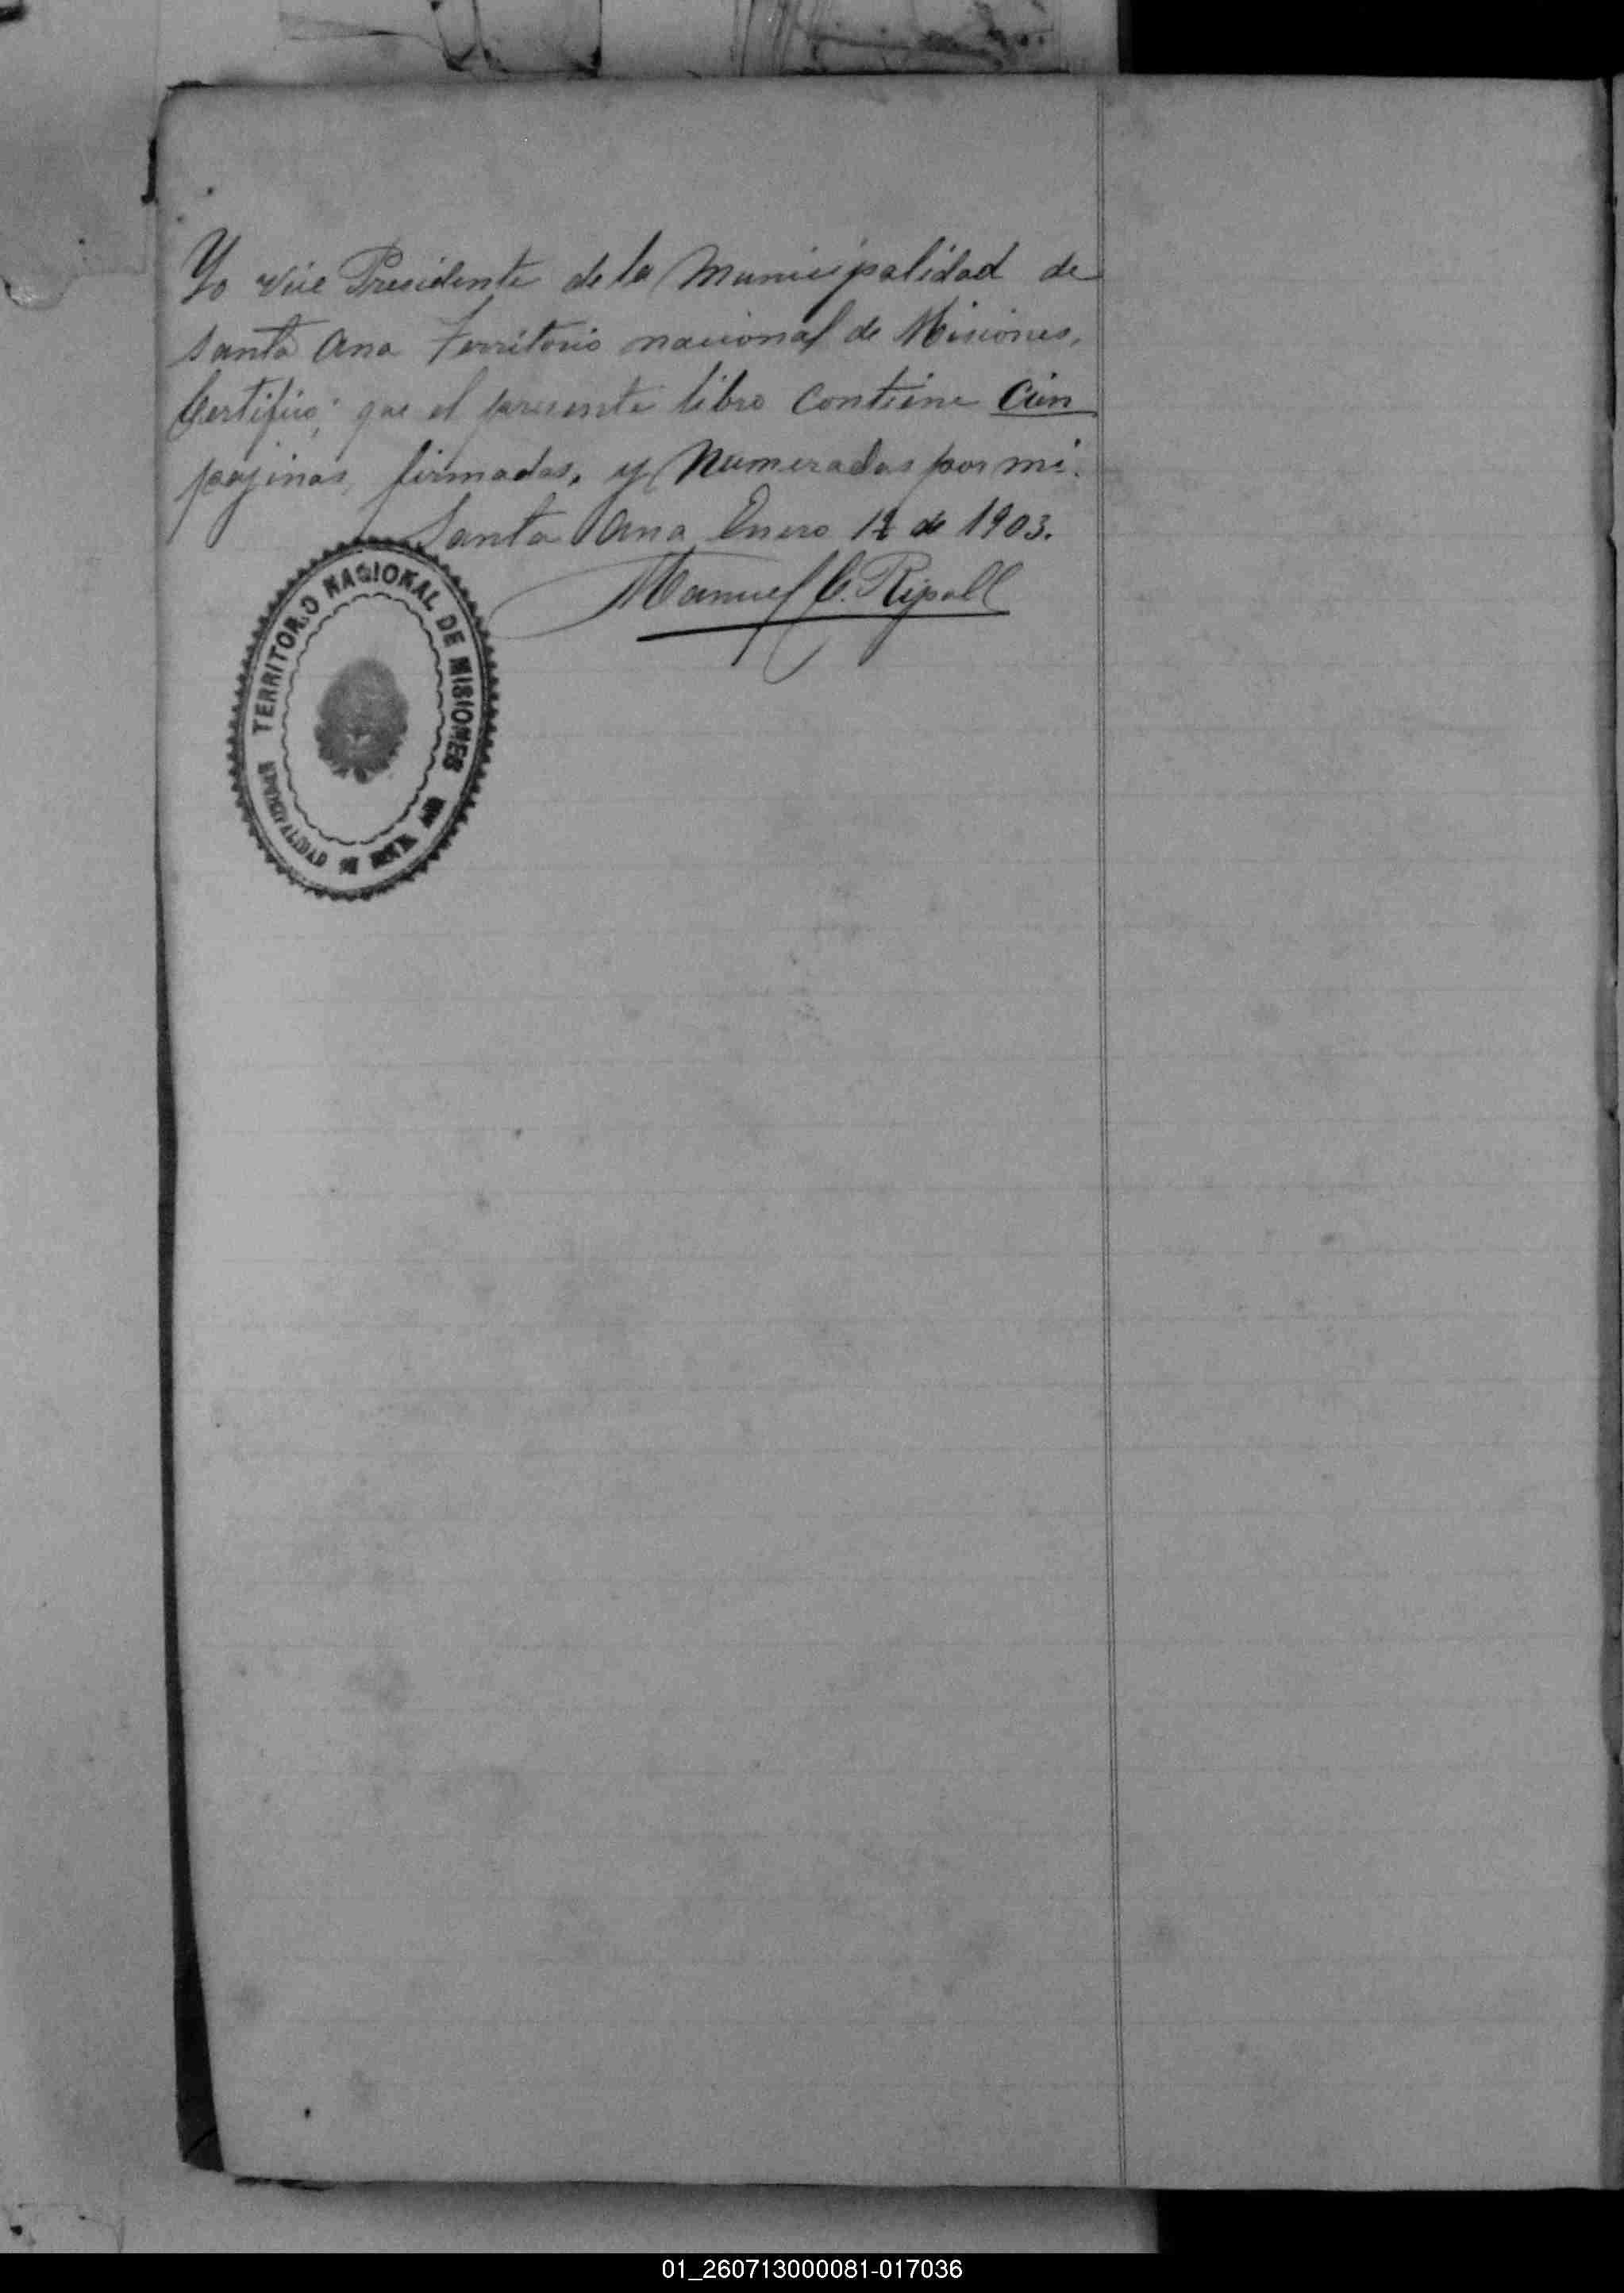 Yo Vice Presidente de la Municipalidad de
Santa Ana Territorio nacional de Misiones,
Certifico; que el presente libro contiene Cien
pajinas, firmadas, y Numeradas por mi.
Santa Ana Enero de 1903.
Manuel C. Ripoll
TERRITORIO NACIONAL DE MISIONES
MUNICIPALIDAD DE SANTA ANA
01_260713000081-017036